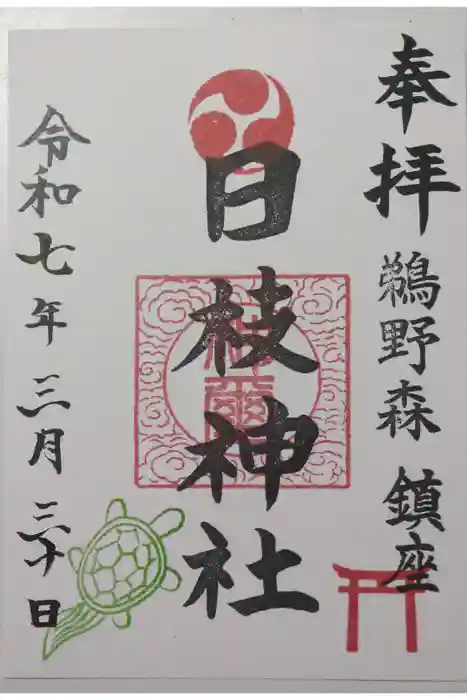 奉拝 鵜野森 鎮座
日枝神社
令和七年 三月 三十日